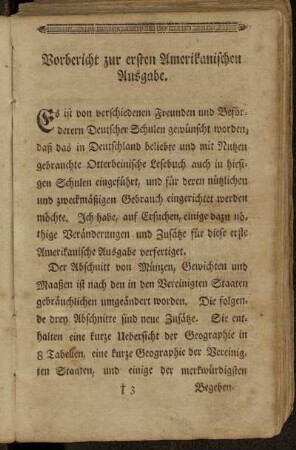 Vorbericht zur ersten Amerikanischen
Ausgabe.
Es ist von verschiedenen Freunden und Beför-
derern Deutscher Schulen gewünscht worden,
daß das in Deutschland beliebte und mit Nutzen
gebrauchte Otterbeinische Lesebuch auch in hiesi-
gen Schulen eingeführt, und für deren nützlichen
und zweckmäßigen Gebrauch eingerichtet werden
möchte. Ich habe, auf Ersuchen, einige dazu nö-
thige Veränderungen und Zusätze für diese erste
Amerikanische Ausgabe verfertiget.
Der Abschnitt von Münzen, Gewichten und
Maaßen ist nach den in den Vereinigten Staaten
gebräuchlichen umgeändert worden. Die folgen-
de drey Abschnitte sind neue Zusätze. Sie ent-
halten eine kurze Uebersicht der Geographie in
8 Tabellen, eine kurze Geographie der Vereinig-
ten Staaten, und einige der merkwürdigsten
† 3 Begeben-